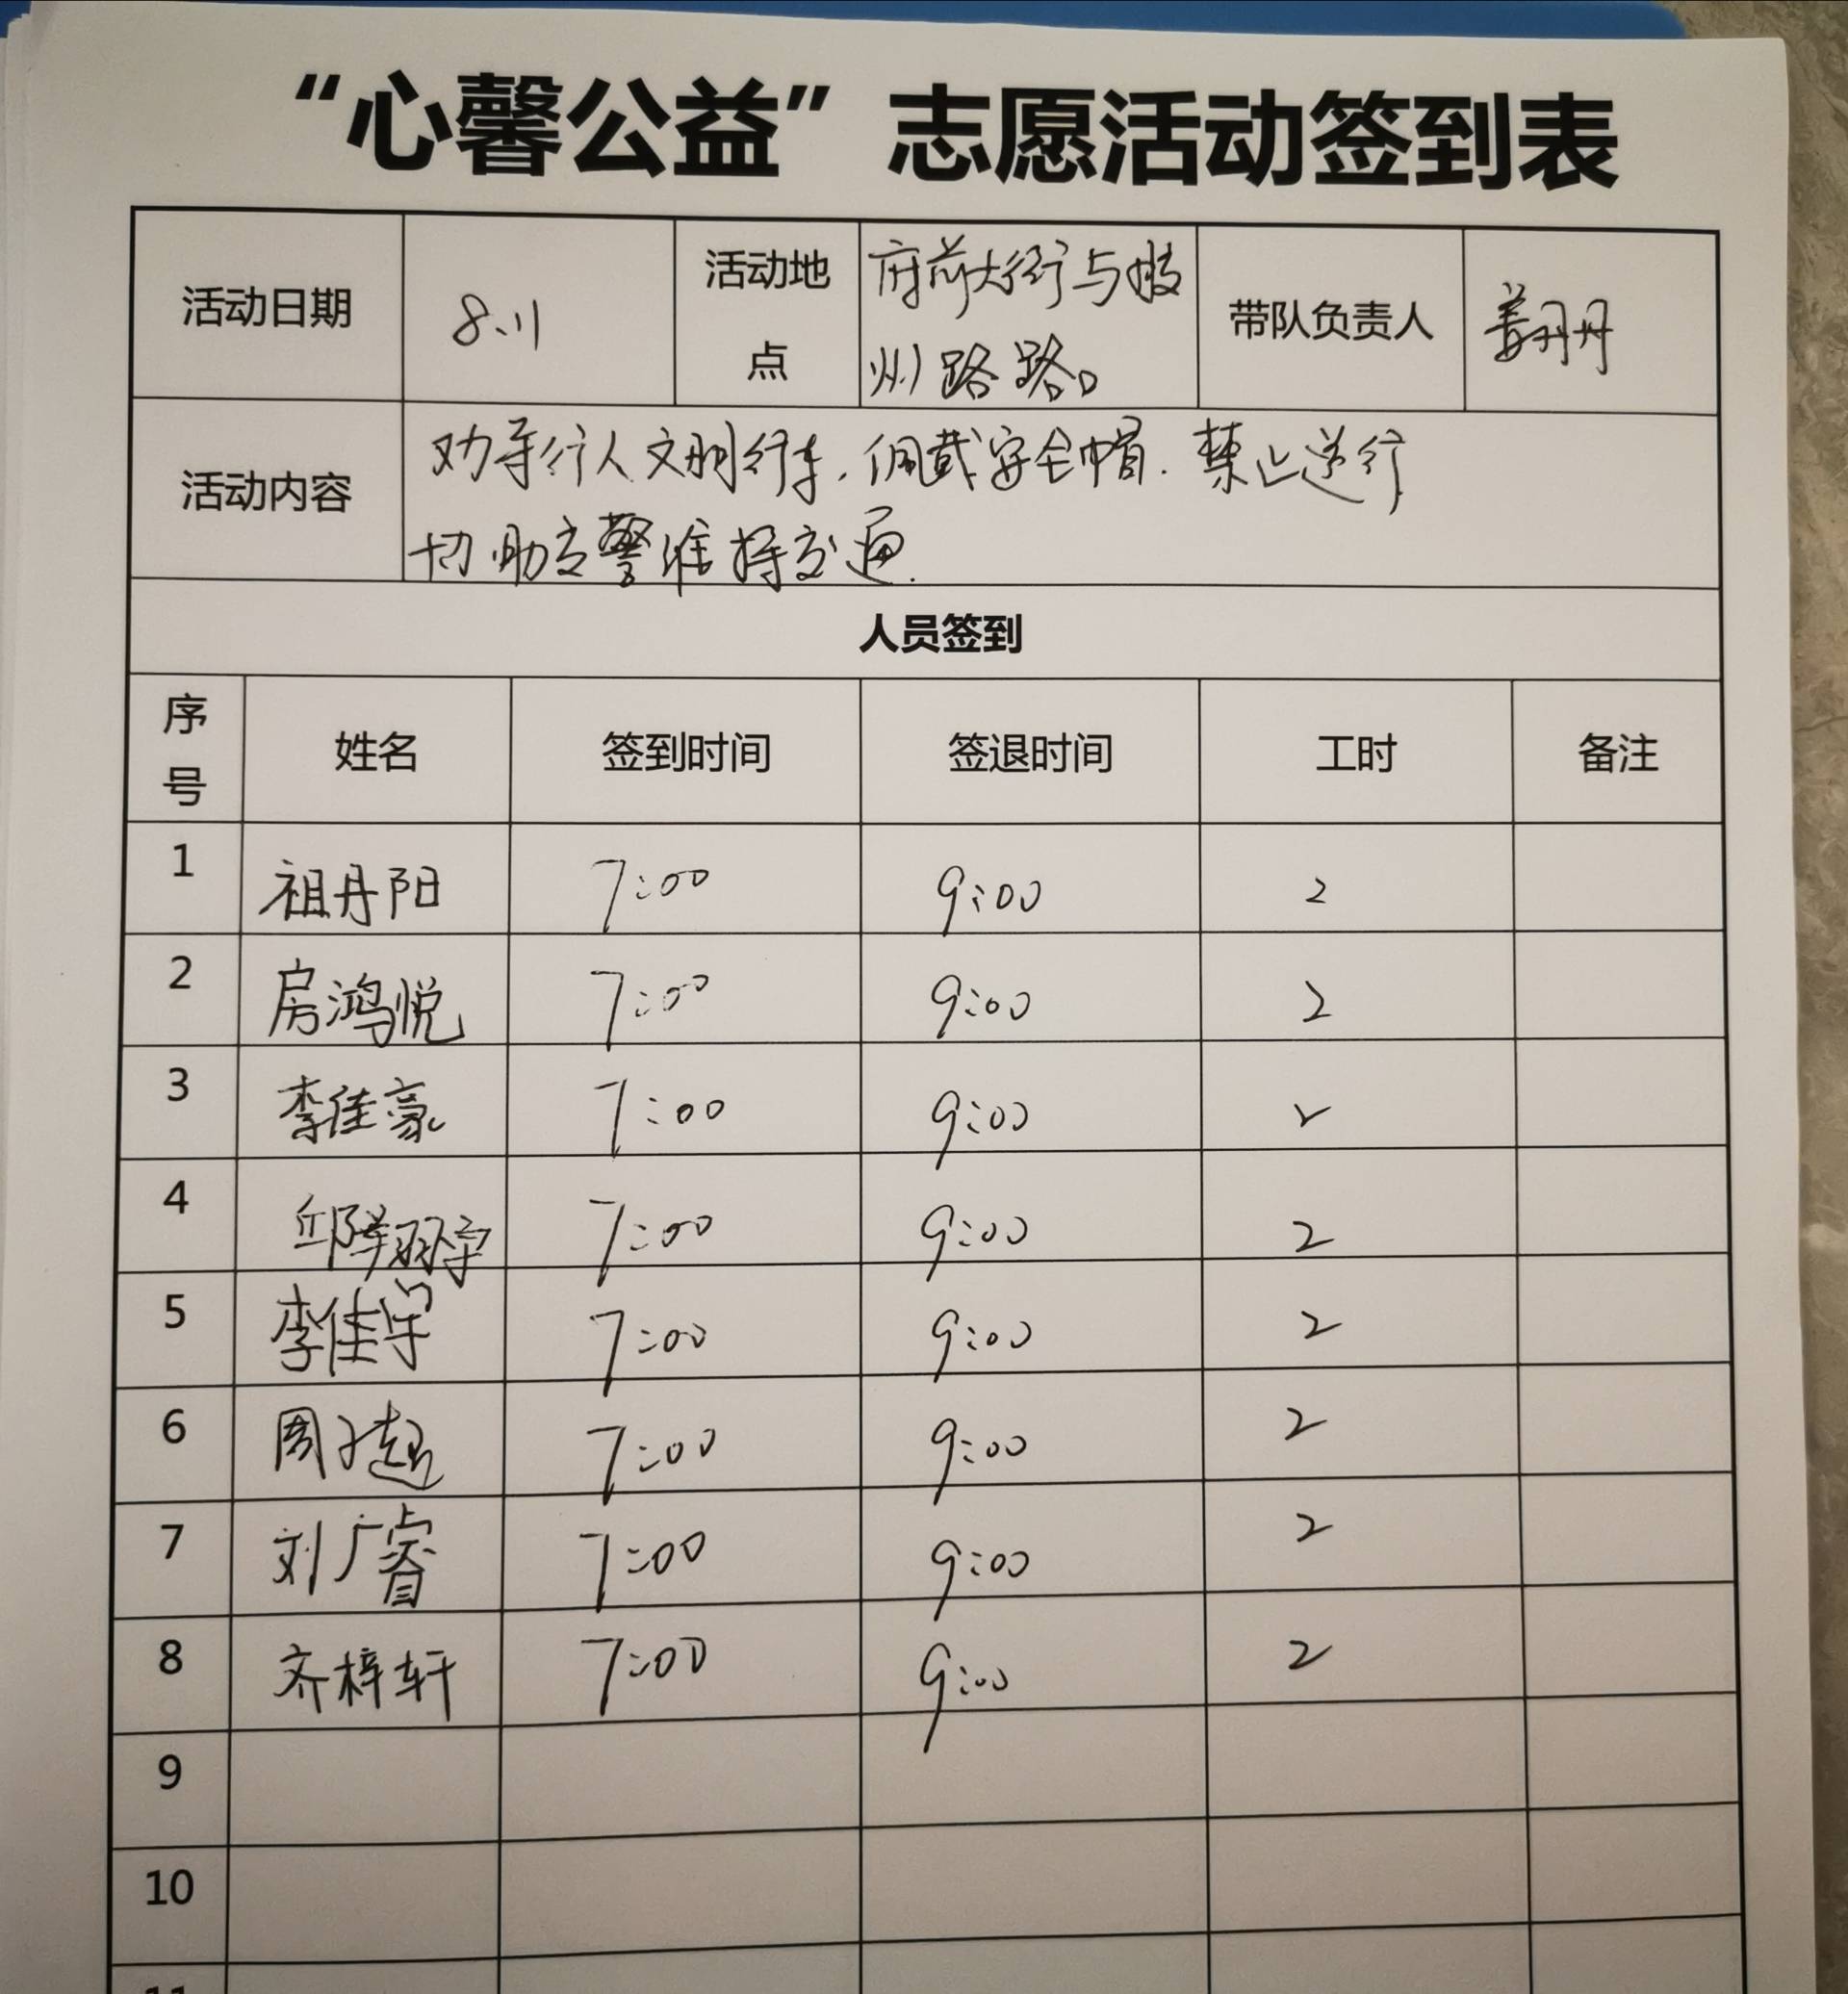 “心馨公益”志愿活动签到表
活动日期 8.11 活动地点 府前大街与胶州路路口 带队负责人 姜丹丹
活动内容 劝导行人文明行车,佩戴安全帽.禁止逆行
协助交警维持交通.
人员签到
序号 姓名 签到时间 签退时间 工时 备注
1 祖丹阳 7:00 9:00 2
2 房鸿悦 7:00 9:00 2
3 李佳豪 7:00 9:00 2
4 7:00 9:00 2
5 李佳宇 7:00 9:00 2
6 周子超 7:00 9:00 2
7 刘广睿 7:00 9:00 2
8 齐梓轩 7:00 9:00 2
9
10